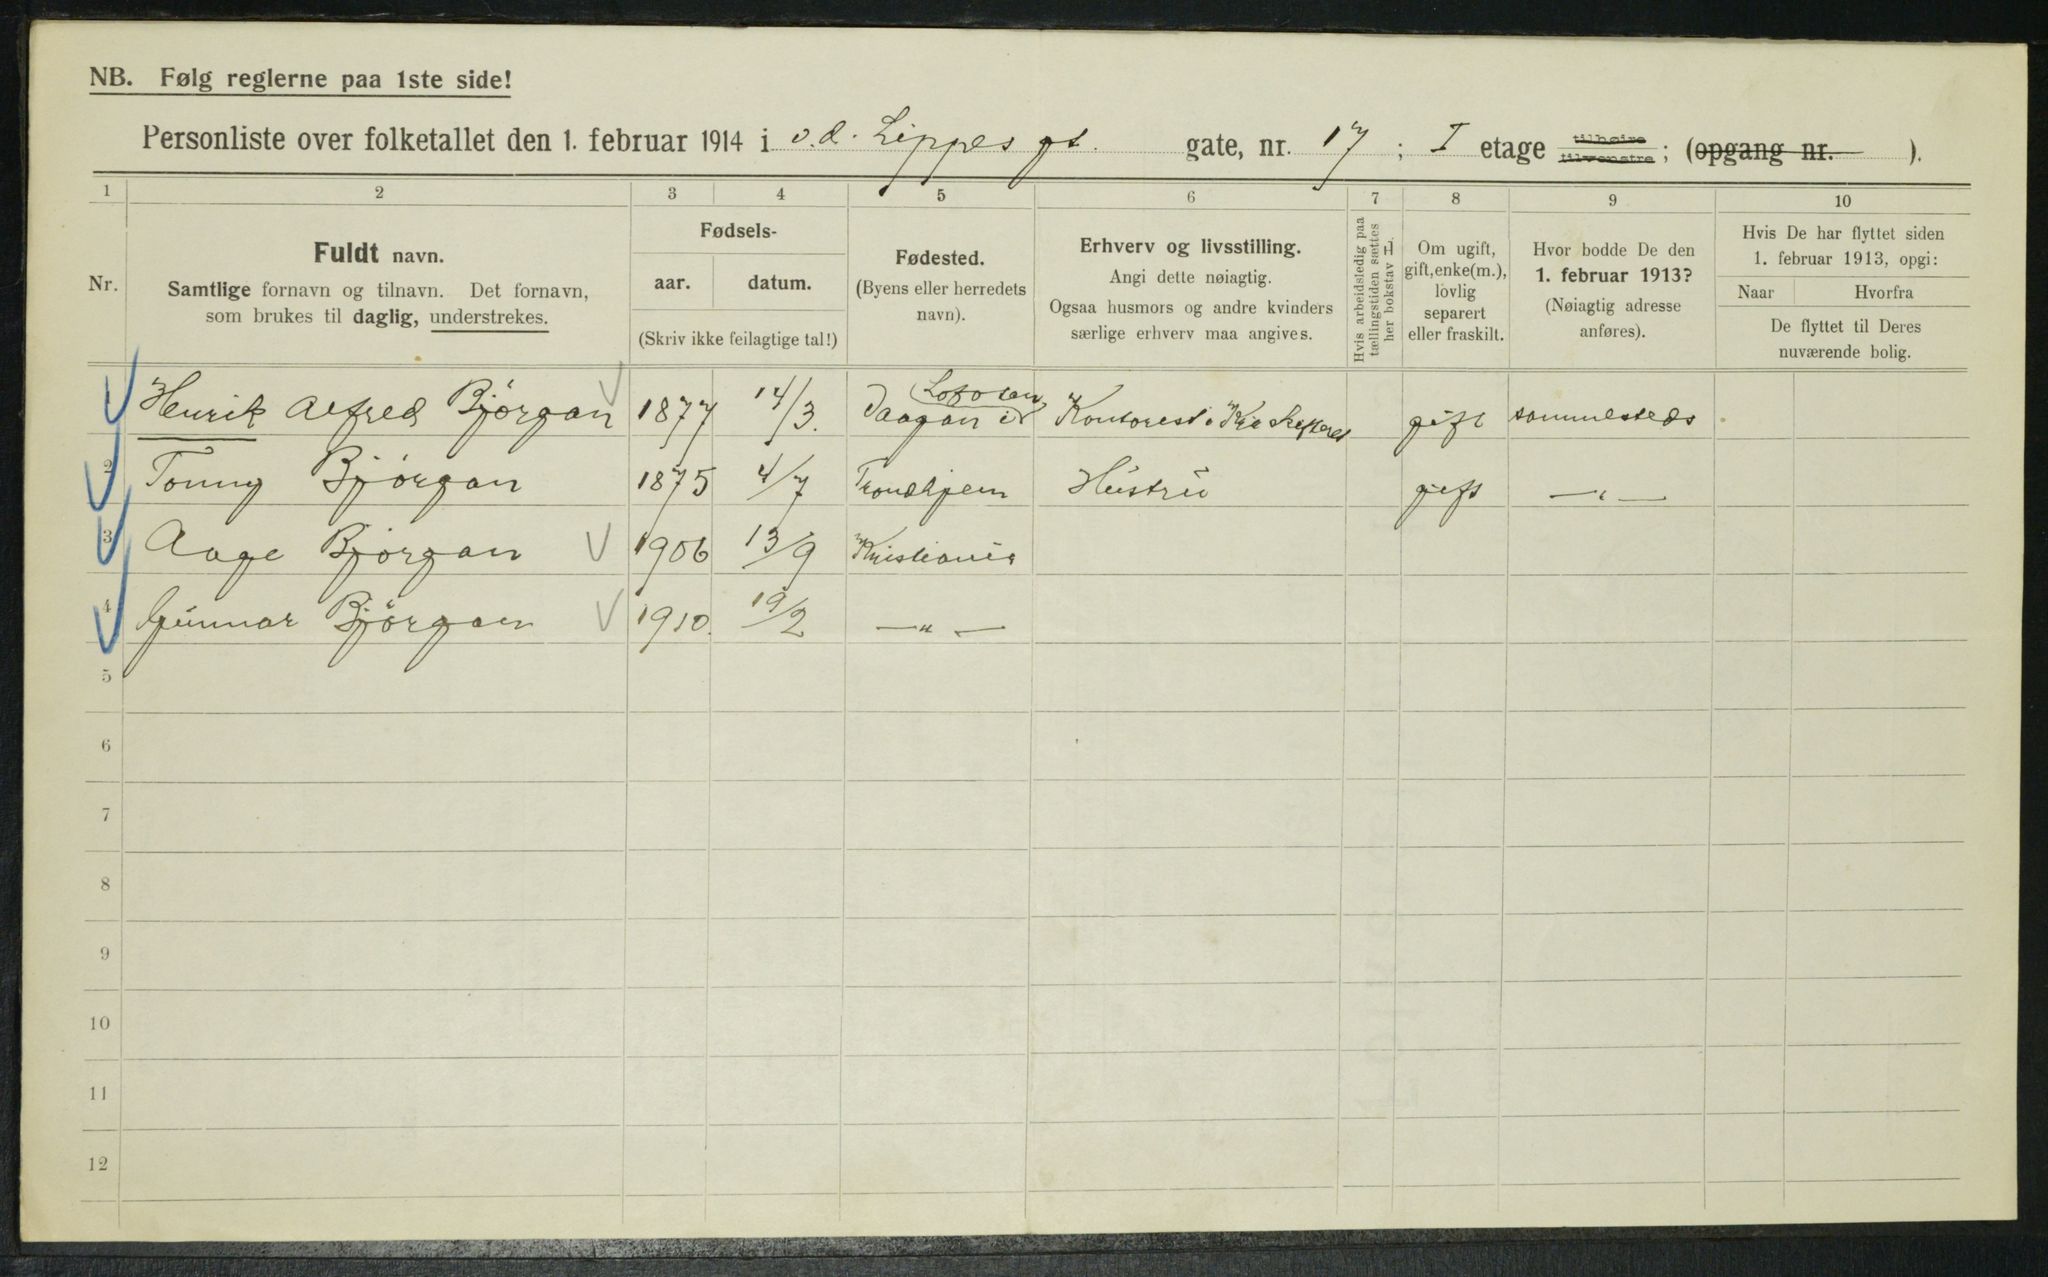 NB. Følg reglerne paa 1ste side!
Personliste over folketallet den 1. februar 1914 i v.d. Lippes gt. gate, nr. 17 ; I etage tilhøire tilvenstre ; (opgang nr. ).
1 2 3 4 5 6 7 8 9 10
Nr.
Fuldt navn.
Samtlige fornavn og tilnavn. Det fornavn,
som brukes til daglig, understrekes.
Fødsels-
aar. datum.
(Skriv ikke feilagtige tal!)
Fødested.
(Byens eller herredets
navn).
Erhverv og livsstilling.
Angi dette nøiagtig.
Ogsaa husmors og andre kvinders
særlige erhverv maa angives.
Hvis arbeidsledig paa
tællingstiden sættes
her bokstav L.
Om ugift,
gift, enke(m.),
lovlig
separert
eller fraskilt.
Hvor bodde De den
1. februar 1913?
(Nøiagtig adresse
anføres).
Hvis De har flyttet siden
1. februar 1913, opgi:
Naar Hvorfra
De flyttet til Deres
nuværende bolig.
Lofoten
1 Henrik Alfred Bjørgan 1877 14/3. Vaagan i Kontorist i gift sammesteds
2 Tonny Bjørgan 1875 4/7 Trondhjem Hustru gift —„—
3 Aage Bjørgan 1906 13/9 Kristiania
4 Gunnar Bjørgan 1910. 19/2 —„—
5
6
7
8
9
10
11
12